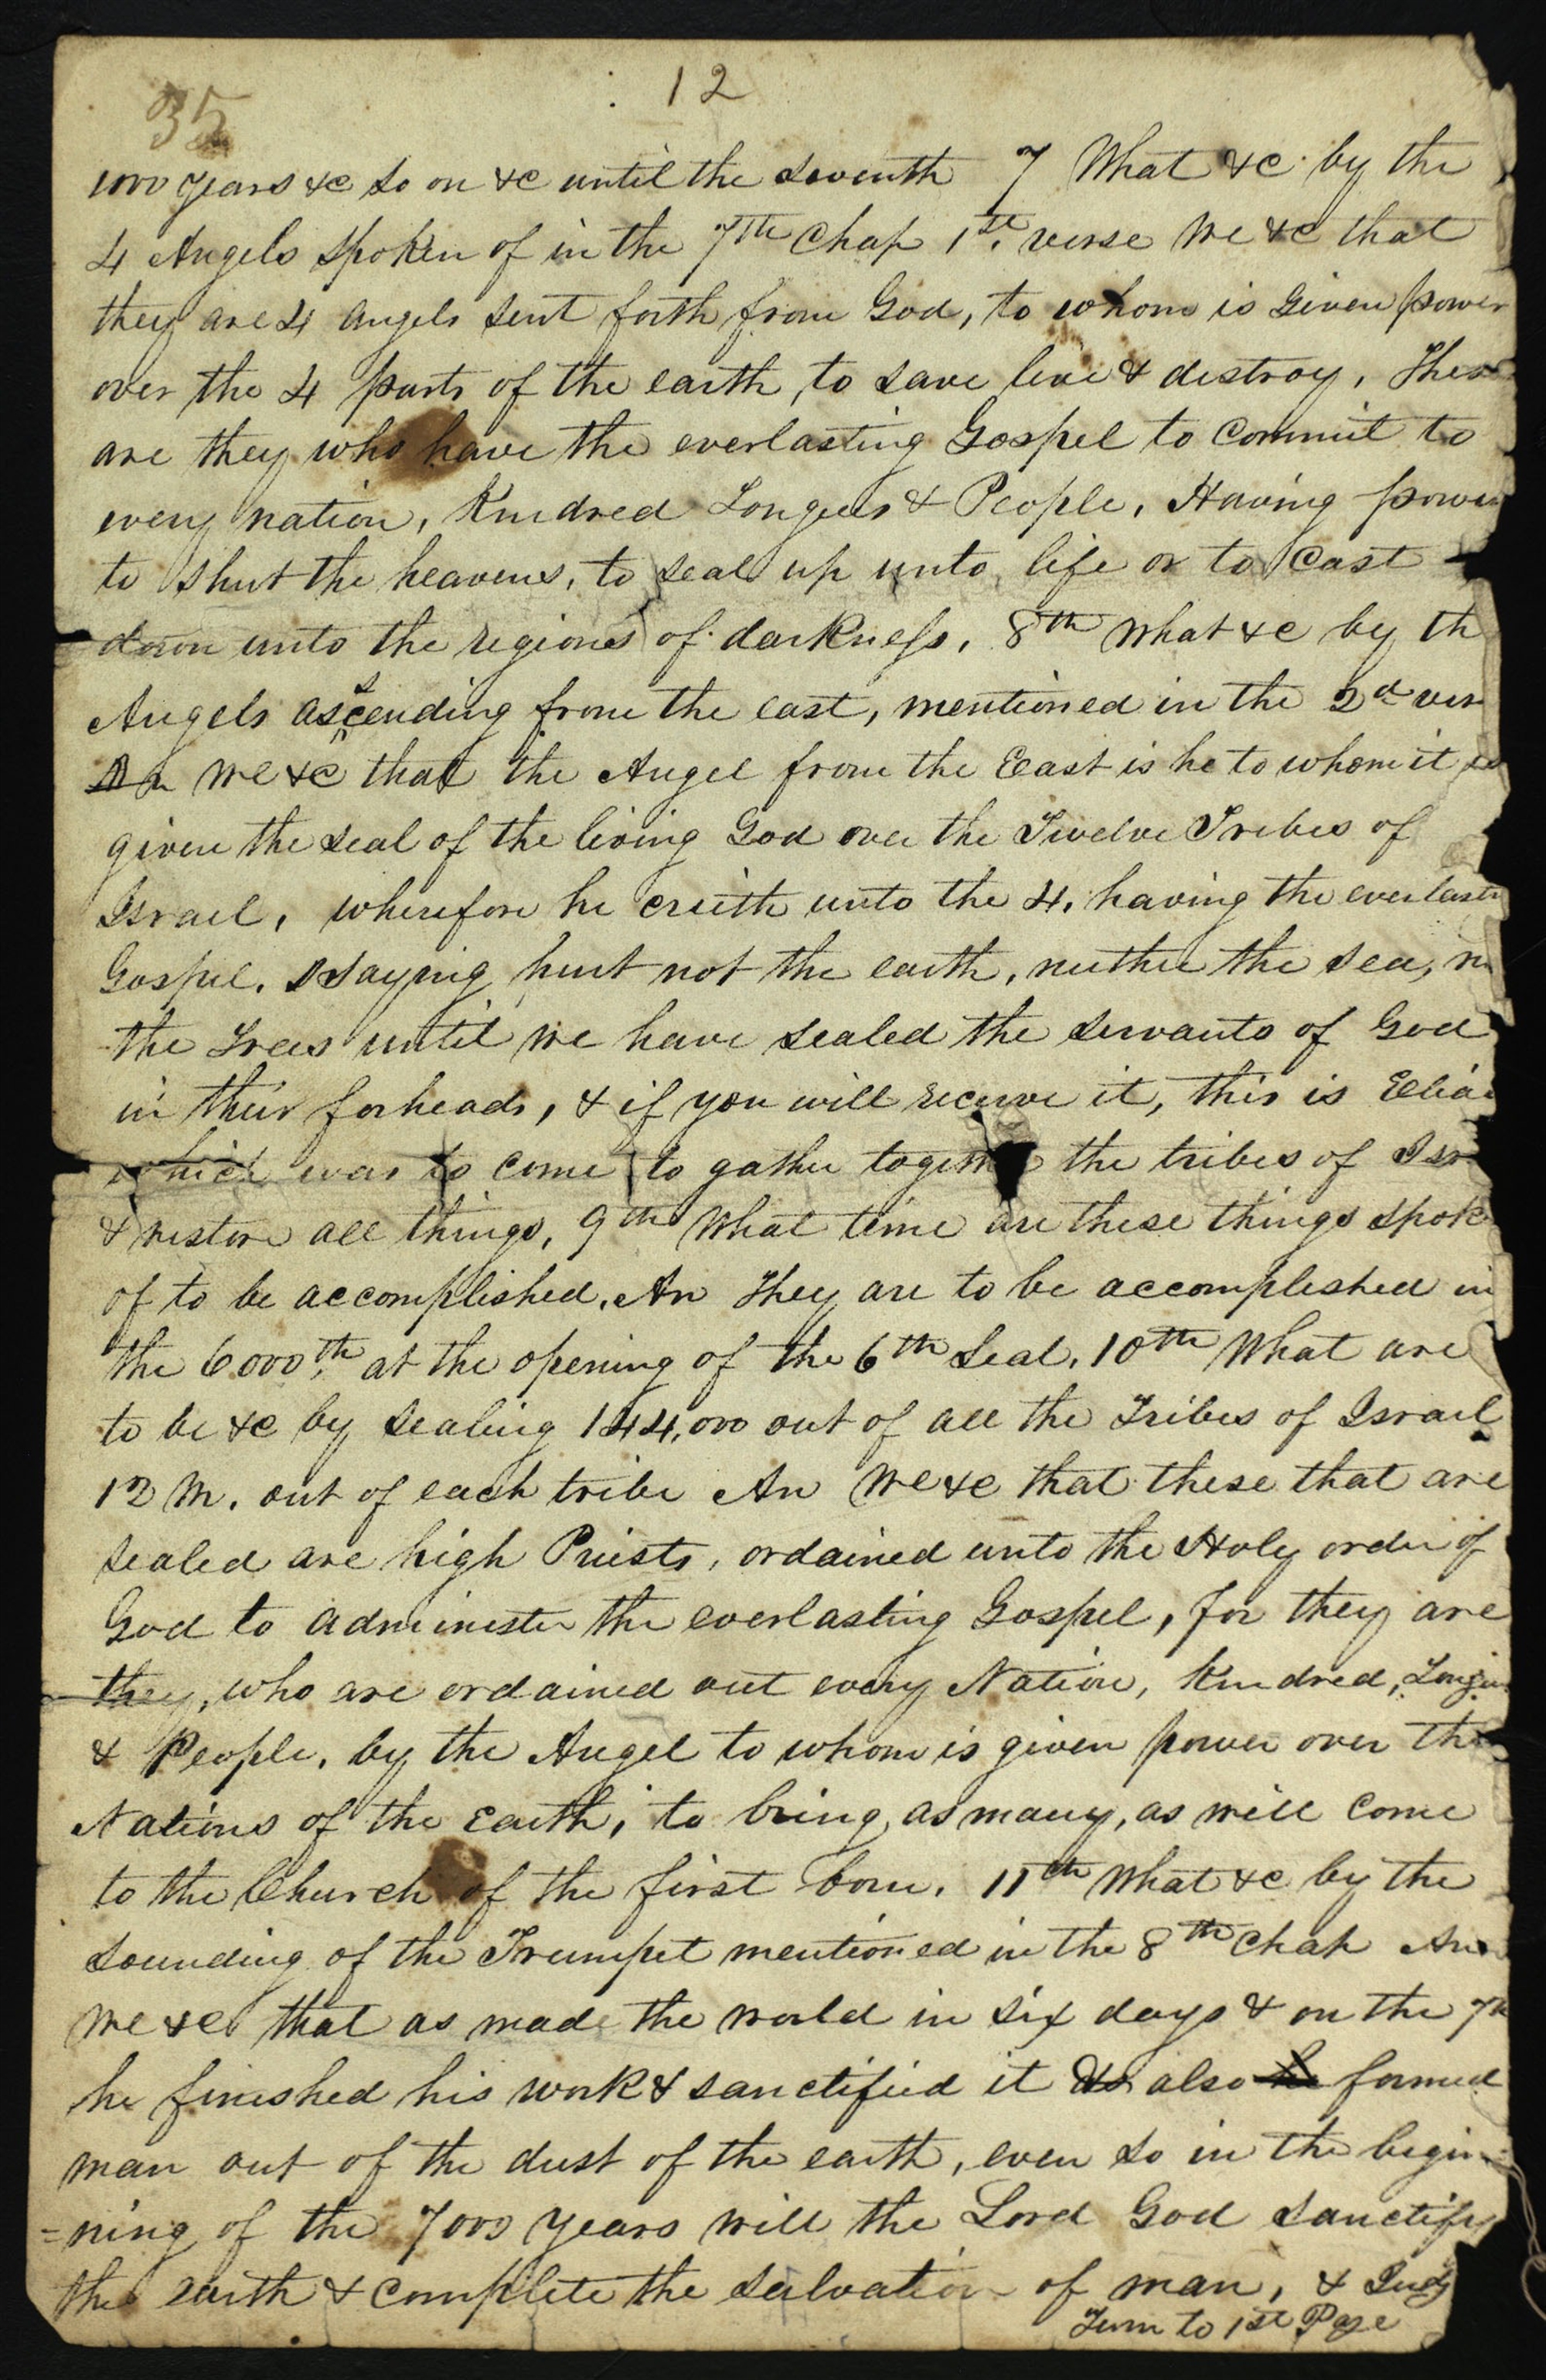 12
35
1000 years &c so on &c until the seventh 7 What &c by the
4 Angels spoken of in the 7th Chap 1st. verse We &c that
they are 4 angels sent forth from God, to whom is given power
over the 4 parts of the earth, to save live & destroy, These
are they who have the everlasting Gospel to Commit to
every nation, Kindred Tongues & People, Having power
to shut the heavens, to seal up unto life or to Cast
down unto the regions of darkness, 8th What &c by th
Angels ascending from the east, mentioned in the 2d ver
An We &c that the Angel from the East is he to whom it is
given the seal of the living God over the Twelve Tribes of
Israel, wherefore he crieth unto the 4, having the everlastin
Gospel. saying hurt not the earth, neither the sea, n
the Trees until we have sealed the servants of God
in their forheads, & if you will receive it, this is Elia
which was to come to gather together the tribes of Isr
& restore all things, 9th What time are these things spok
of to be accomplished. An They are to be accomplished in
the 6000th, at the opening of the 6th Seal, 10th What are
to be &c by sealing 144,000 out of all the Tribes of Israel
12 M. out of each tribe An We &c that these that are
sealed are high Priests, ordained unto the Holy order of
God to administer the everlasting Gospel, for they are
they, who are ordained out every Nation, Kindred, Tongu
& People, by the Angel to whom is given power over the
Nations of the Earth, to bring, as many, as will come
to the Church of the first born. 11th What &c by the
sounding of the Trumpet mentioned in the 8th Chap An
We &c that as made the world in six days & on the 7th
he finished his work & sanctified it & also he formed
man out of the dust of the earth, even so in the begin=
=ning of the 7000 years will the Lord God sanctify
the earth & complete the salvation of man, & Judg
Turn to 1st Page